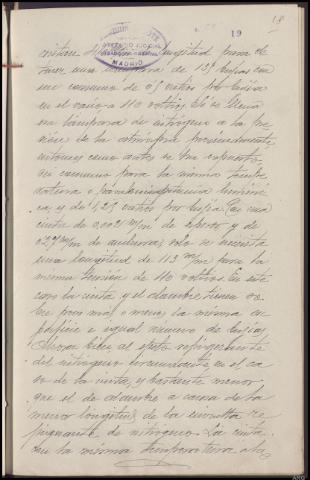 18
19
MADRID
longitud para ob
tener una lámpara de 125 bujías con
un consumo de 0,5 vatios por bujía
en el vacío a 110 voltios. Si se llena
la lámpara de nitrógeno a la pre
sión de la atmósfera próximamente
entonces como antes se ha expuesto,
su consumo para la misma
y de 1,25 vatios por bujía. En una
cinta de 0,0021 m/m de espesor y de
0,27 m/m de anchura, solo se necesita
una longitud de 113 m/m para la
misma tensión de 110 voltios. En este
caso la cinta y el alambre tienen so
bre poco más o menos la misma su
perficie e igual número de bujías.
Ahora bien, el efecto refrigerante
del nitrógeno circundante, en el ca
so de la cinta, es bastante menor
que el de alambre a causa de la
menor longitud de la
de nitrógeno. La cinta
con la misma temperatura